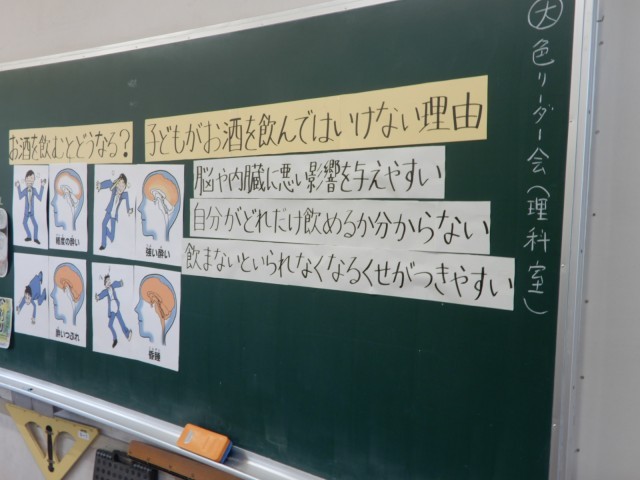 お酒を飲むとどうなる?
軽度の酔い
強い酔い
酔いつぶれ
昏睡
子どもがお酒を飲んではいけない理由
脳や内臓に悪い影響を与えやすい
自分がどれだけ飲めるか分からない
飲まないといられなくなるくせがつきやすい
大 色リーダー会(理科室)